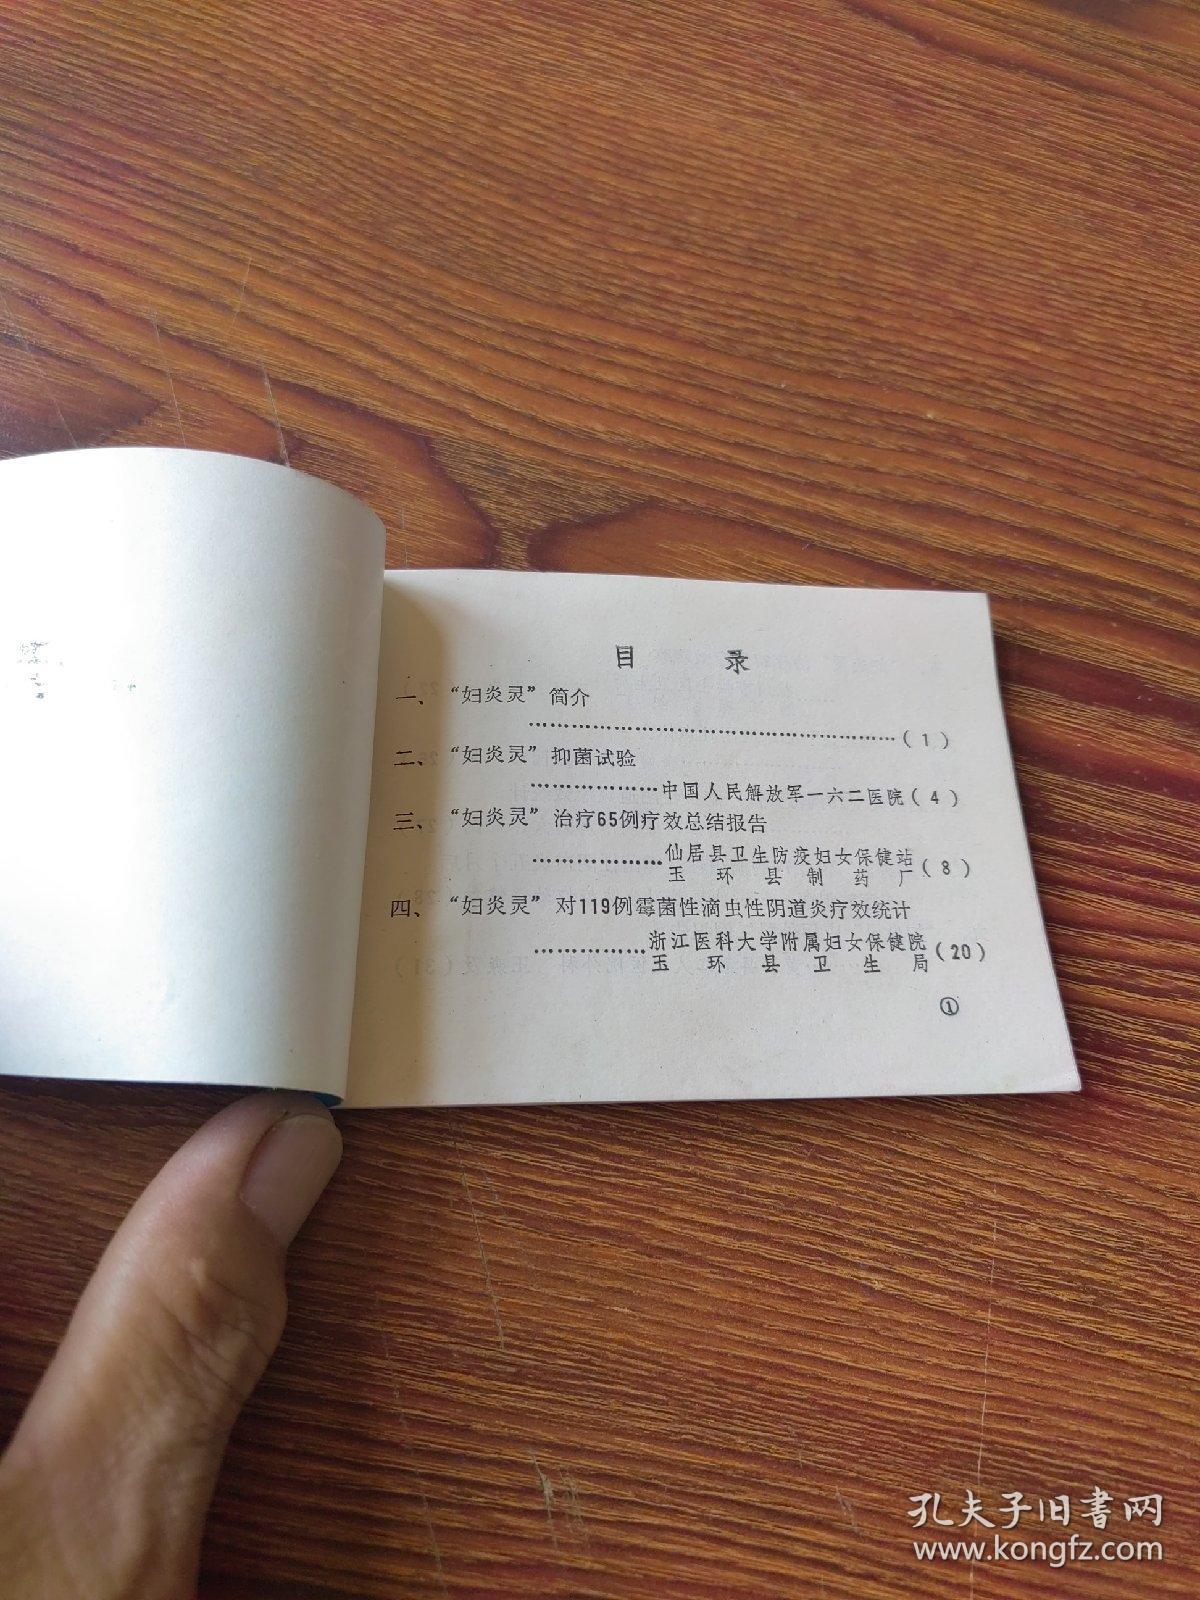 目 录
一、“妇炎灵”简介
……………………………………………(1)
二、“妇炎灵”抑菌试验
………………中国人民解放军一六二医院(4)
三、“妇炎灵”治疗65例疗效总结报告
………………仙居县卫生防疫妇女保健站
玉环县制药厂(8)
四、“妇炎灵”对119例霉菌性滴虫性阴道炎疗效统计
……………浙江医科大学附属妇女保健院
玉环县卫生局(20)
①
孔夫子旧书网
www.kongfz.com